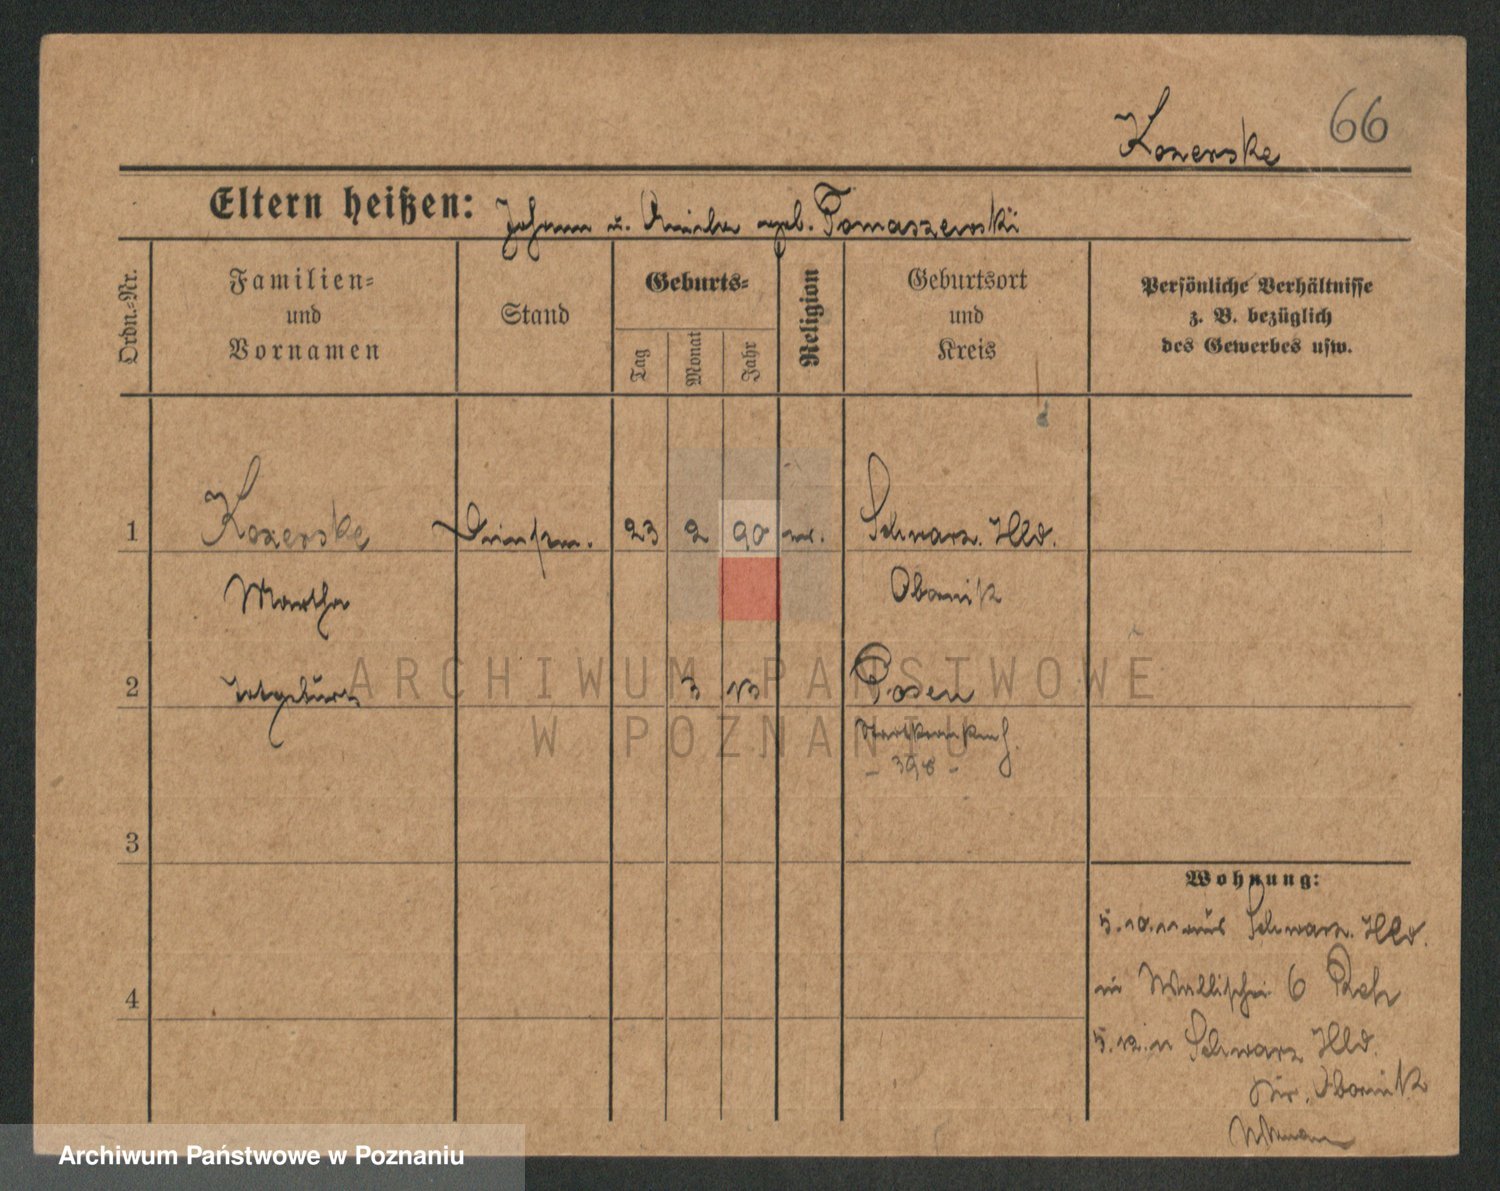 66
Kozerske
Eltern heißen: Johann u. Emilie geb. Tomaszewski
Ordn.-Nr.
Familien-
und
Vornamen
Stand
Geburts-
Tag
Monat
Jahr
Religion
Geburtsort
und
Kreis
Persönliche Verhältnisse
z. B. bezüglich
des Gewerbes usw.
1 Kozerske 23 2 90 Schwarz. Hld.
Martha Obornik
2 3 13 Posen
- 398 -
ARCHIWUM PAŃSTWOWE
W POZNANIU
3
Wohnung:
5.10.11 aus Schwarz. Hld.
in Wallischei 6
4
5.12. in Schwarz Hld.
Kr. Obornik
Archiwum Państwowe w Poznaniu